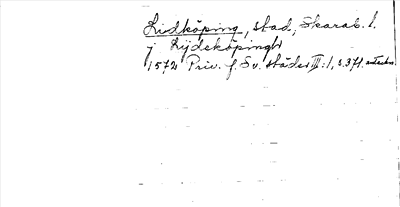 Lidköping, stad, Skarab. l.
j Lijdeköpingh
1572 Priv. f. Sv. städer III:1, s. 371.